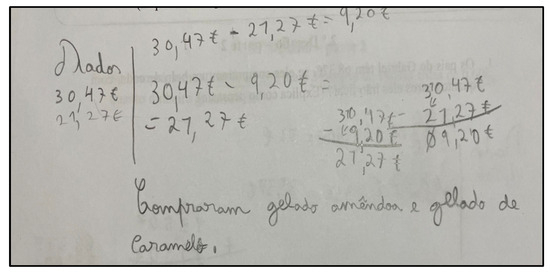 30,47€ - 21,27€ = 9,20€
Dados
30,47€
21,27€
30,47€ - 9,20€ =
= 21,27€
30,47€ -
- 9,20€
21,27€
30,47€
- 21,27€
09,20€
Compraram gelado amêndoa e gelado de
Caramelo.